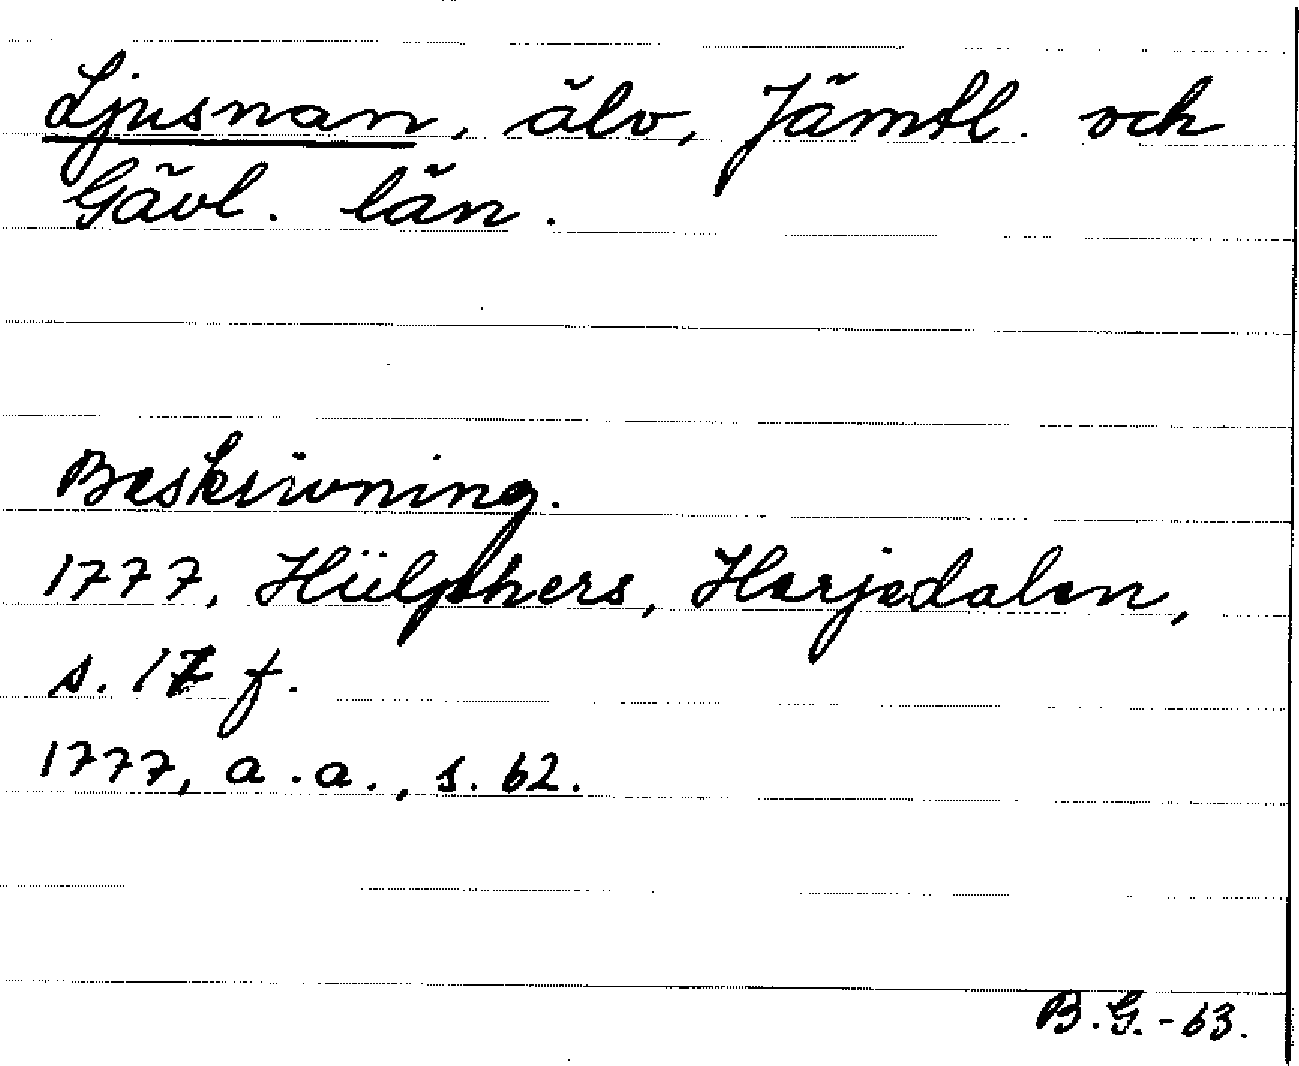 Ljusnan, älv, Jämtl. och
Gävl. län.
Beskrivning.
1777, Hülphers, Herjedalen,
s. 17 f.
1777, a.a., s. 62.
B.G.-63.